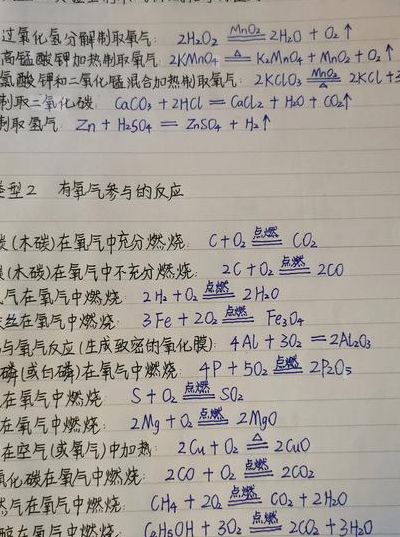 过氧化氢分解制取氧气: 2H₂O₂ =MnO₂= 2H₂O + O₂↑
高锰酸钾加热制取氧气: 2KMnO₄ =△= K₂MnO₄ + MnO₂ + O₂↑
氯酸钾和二氧化锰混合加热制取氧气: 2KClO₃ =MnO₂/△= 2KCl + 3
制取二氧化碳: CaCO₃ + 2HCl = CaCl₂ + H₂O + CO₂↑
制取氢气: Zn + H₂SO₄ = ZnSO₄ + H₂↑
类型2 有氧气参与的反应
炭(木碳)在氧气中充分燃烧: C + O₂ =点燃= CO₂
(木碳)在氧气中不充分燃烧: 2C + O₂ =点燃= 2CO
气在氧气中燃烧 2H₂ + O₂ =点燃= 2H₂O
丝在氧气中燃烧: 3Fe + 2O₂ =点燃= Fe₃O₄
与氧气反应(生成致密的氧化膜): 4Al + 3O₂ = 2Al₂O₃
磷(或白磷)在氧气中燃烧: 4P + 5O₂ =点燃= 2P₂O₅
在氧气中燃烧: S + O₂ =点燃= SO₂
在氧气中燃烧: 2Mg + O₂ =点燃= 2MgO
在空气(或氧气)中加热: 2Cu + O₂ =△= 2CuO
氧化碳在氧气中燃烧: 2CO + O₂ =点燃= 2CO₂
然气在氧气中燃烧: CH₄ + 2O₂ =点燃= CO₂ + 2H₂O
醇在氧气中燃烧: C₂H₅OH + 3O₂ =点燃= 2CO₂ + 3H₂O